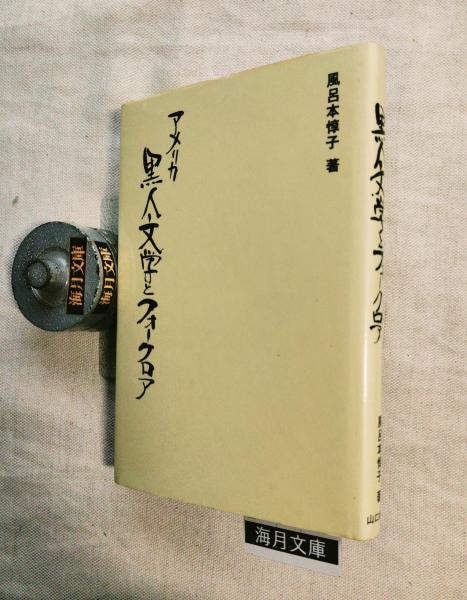 風呂本惇子 著
アメリカ
黒人文学とフォークロア
黒人文学とフォークロア
風呂本惇子 著
山口
海月文庫
海月文庫
海月文庫